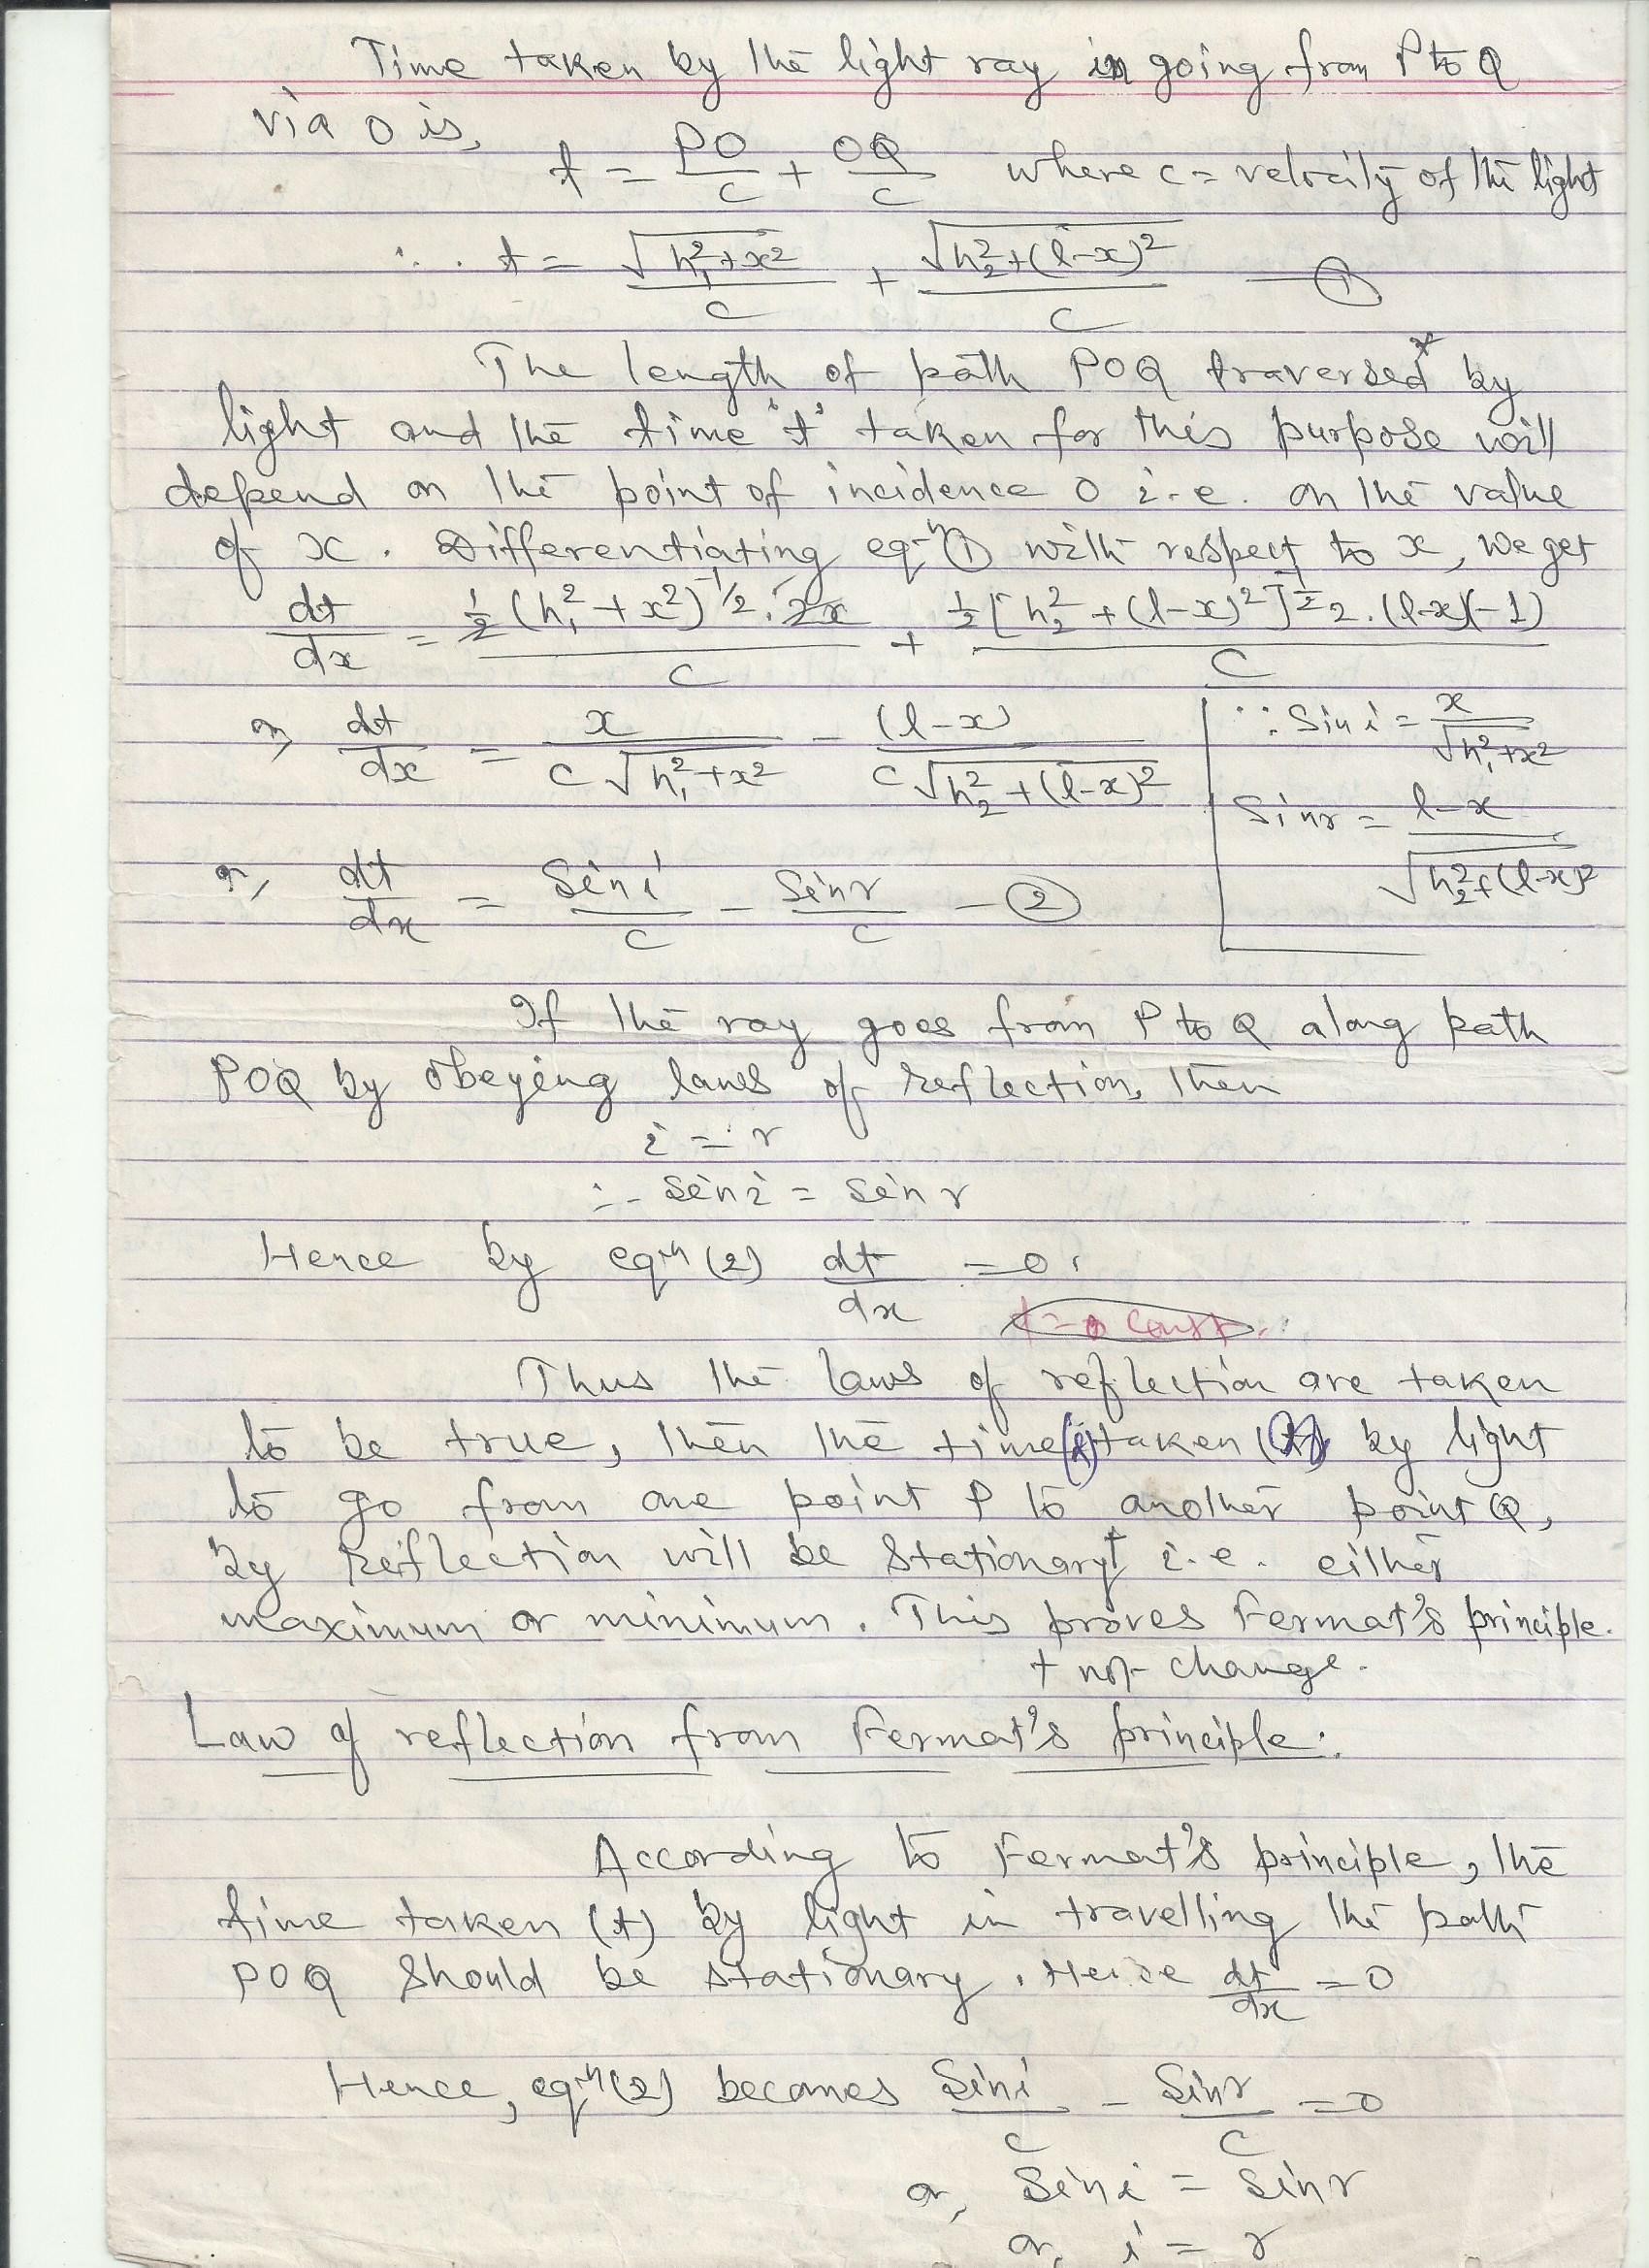 Time taken by the light ray in going from P to Q
via O is,
t = PO/c + OQ/c where c = velocity of the light
∴ t = √(h₁²+x²)/c + √(h₂²+(l-x)²)/c — ①
The length of path POQ traversed* by
light and the time 't' taken for this purpose will
depend on the point of incidence O i.e. on the value
of x. Differentiating eqⁿ ① with respect to x, we get
dt/dx = ½(h₁²+x²)^(-1/2).2x/c + ½[h₂²+(l-x)²]^(-1/2) 2.(l-x)(-1)/c
or, dt/dx = x/(c√(h₁²+x²)) - (l-x)/(c√(h₂²+(l-x)²))
∵ Sin i = x/√(h₁²+x²)
Sin r = (l-x)/√(h₂²+(l-x)²)
or, dt/dx = Sin i/c - Sin r/c — ②
If the ray goes from P to Q along path
POQ by obeying laws of reflection, then
i = r
∴ Sin i = Sin r
Hence by eqⁿ (2) dt/dx = 0.
Thus the laws of reflection are taken
to be true, then the time (t) taken by light
to go from one point P to another point Q,
by reflection will be Stationary† i.e. either
maximum or minimum. This proves Fermat's principle.
† not change.
Law of reflection from Fermat's principle:
According to Fermat's principle, the
time taken (t) by light in travelling the path
POQ Should be stationary. Hence dt/dx = 0
Hence, eqⁿ (2) becomes Sin i/c - Sin r/c = 0
or, Sin i = Sin r
or, i = r